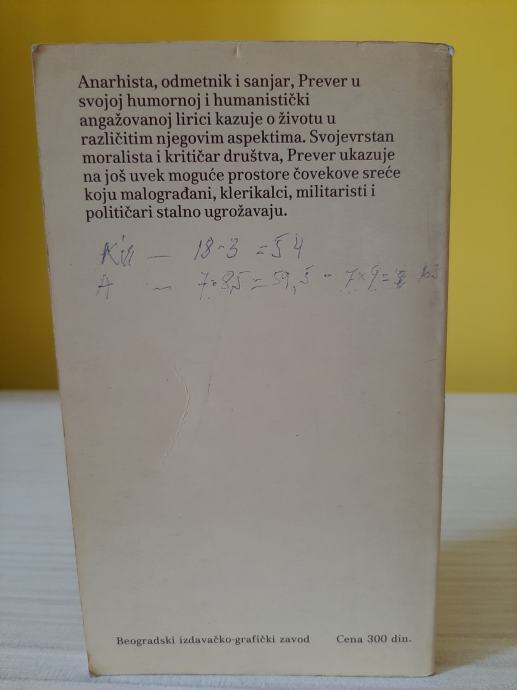 Anarhista, odmetnik i sanjar, Prever u
svojoj humornoj i humanistički
angažovanoj lirici kazuje o životu u
različitim njegovim aspektima. Svojevrstan
moralista i kritičar društva, Prever ukazuje
na još uvek moguće prostore čovekove sreće
koju malograđani, klerikalci, militaristi i
političari stalno ugrožavaju.
— 18·3 = 54
A — 7·8,5 = 59,5 - 7×9 =
Beogradski izdavačko-grafički zavod Cena 300 din.